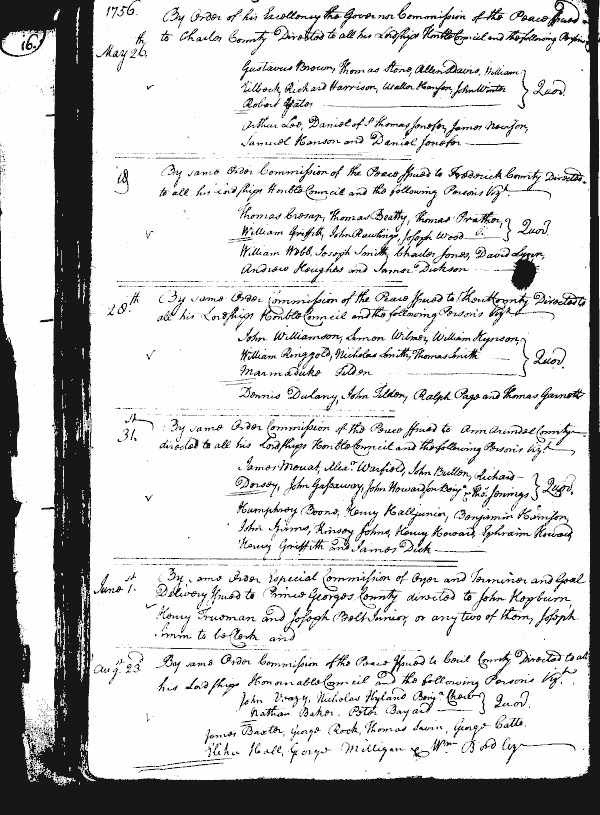 16.
1756. By Order of his Excellency the Governor Commission of the Peace Issued
to Charles County Directed to all his Lordships Honble Council and the following Persons
May 26th
Gustavus Brown, Thomas Stone, Allen Davis, William
Eilbeck, Richard Harrison, Walter Hanson, John Winter } Quod.
Robert Yates
Arthur Lee, Daniel of St Thomas Jenefer, James Nevison,
Samuel Hanson and Daniel Jenefer
By same Order Commission of the Peace Issued to Frederick County Directed
to all his Lordships Honble Council and the following Persons Vizt
Thomas Cresap, Thomas Beatty, Thomas Prather,
William Griffith, John Rawlings, Joseph Wood } Quod.
William Webb, Joseph Smith, Charles Jones, David Lynn,
Andrew Heughes and James Dickson
28th By same Order Commission of the Peace Issued to Kent County Directed to
all his Lordships Honble Council and the following Persons Vizt
John Williamson, Lemon Wilmer, William Hynson,
William Ringgold, Nicholas Smith, Thomas Smith } Quod.
Marmaduke Tilden
Dennis Dulany, John Tilden, Ralph Page and Thomas Garnett
31st By same Order Commission of the Peace Issued to Ann Arundel County
directed to all his Lordships Honble Council and the following Persons Vizt
James Mouat, Alexr Warfield, John Bullen, Richard
Dorsey, John Gassaway, John Howard son Benjn Thos. Jennings } Quod.
Humphrey Boone, Henry Hall junior, Benjamin
John Ijams, Kinsey Johns, Henry Howard, Ephraim Howard
Henry Griffith and James Dick
June 1st. By same Order Especial Commission of Oyer and Terminer and Goal
Delivery Issued to Prince Georges County directed to John Hepburn
Henry Trueman and Joseph Belt Junior, or any two of them, Joseph
to be Clerk and
Augst 23d By same Order Commission of the Peace Issued to Cecil County Directed to all
his Lordships Honourable Council and the following Persons Vizt.
John Veazy, Nicholas Hyland Benja Chew
Nathan Baker, Peter Bayard } Quod.
James Baxter, George Rock, Thomas Savin, George Catto
Elisha Hall, George Milligan & Wm